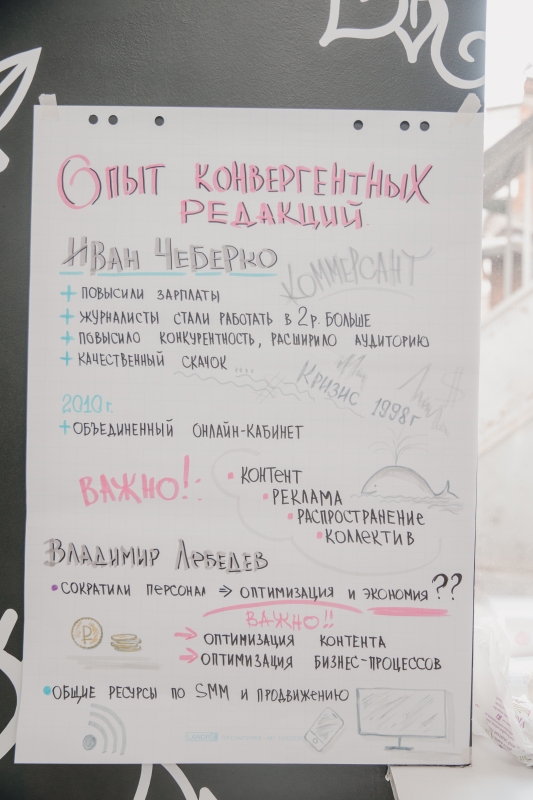 Опыт конвергентных
редакций
Иван Чеберко
Коммерсант
+ повысили зарплаты
+ журналисты стали работать в 2 р. больше
+ повысило конкурентность, расширило аудиторию
+ качественный скачок ....
Кризис 1998г
$
2010 г.
+ объединенный онлайн-кабинет
Важно!:
• контент
• реклама
• распространение
• коллектив
Владимир Лебедев
• сократили персонал ⇒ оптимизация и экономия??
Важно!!
→ оптимизация контента
→ оптимизация бизнес-процессов
₽
• общие ресурсы по SMM и продвижению